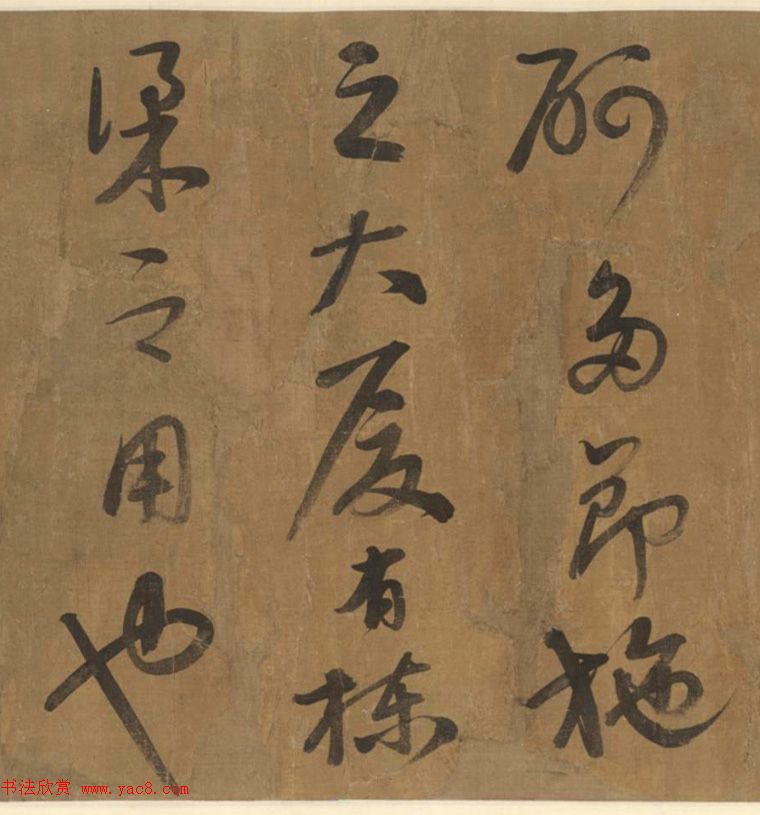 砢多節施
之大厦有棟
梁之用也
书法欣赏 www.yac8.com